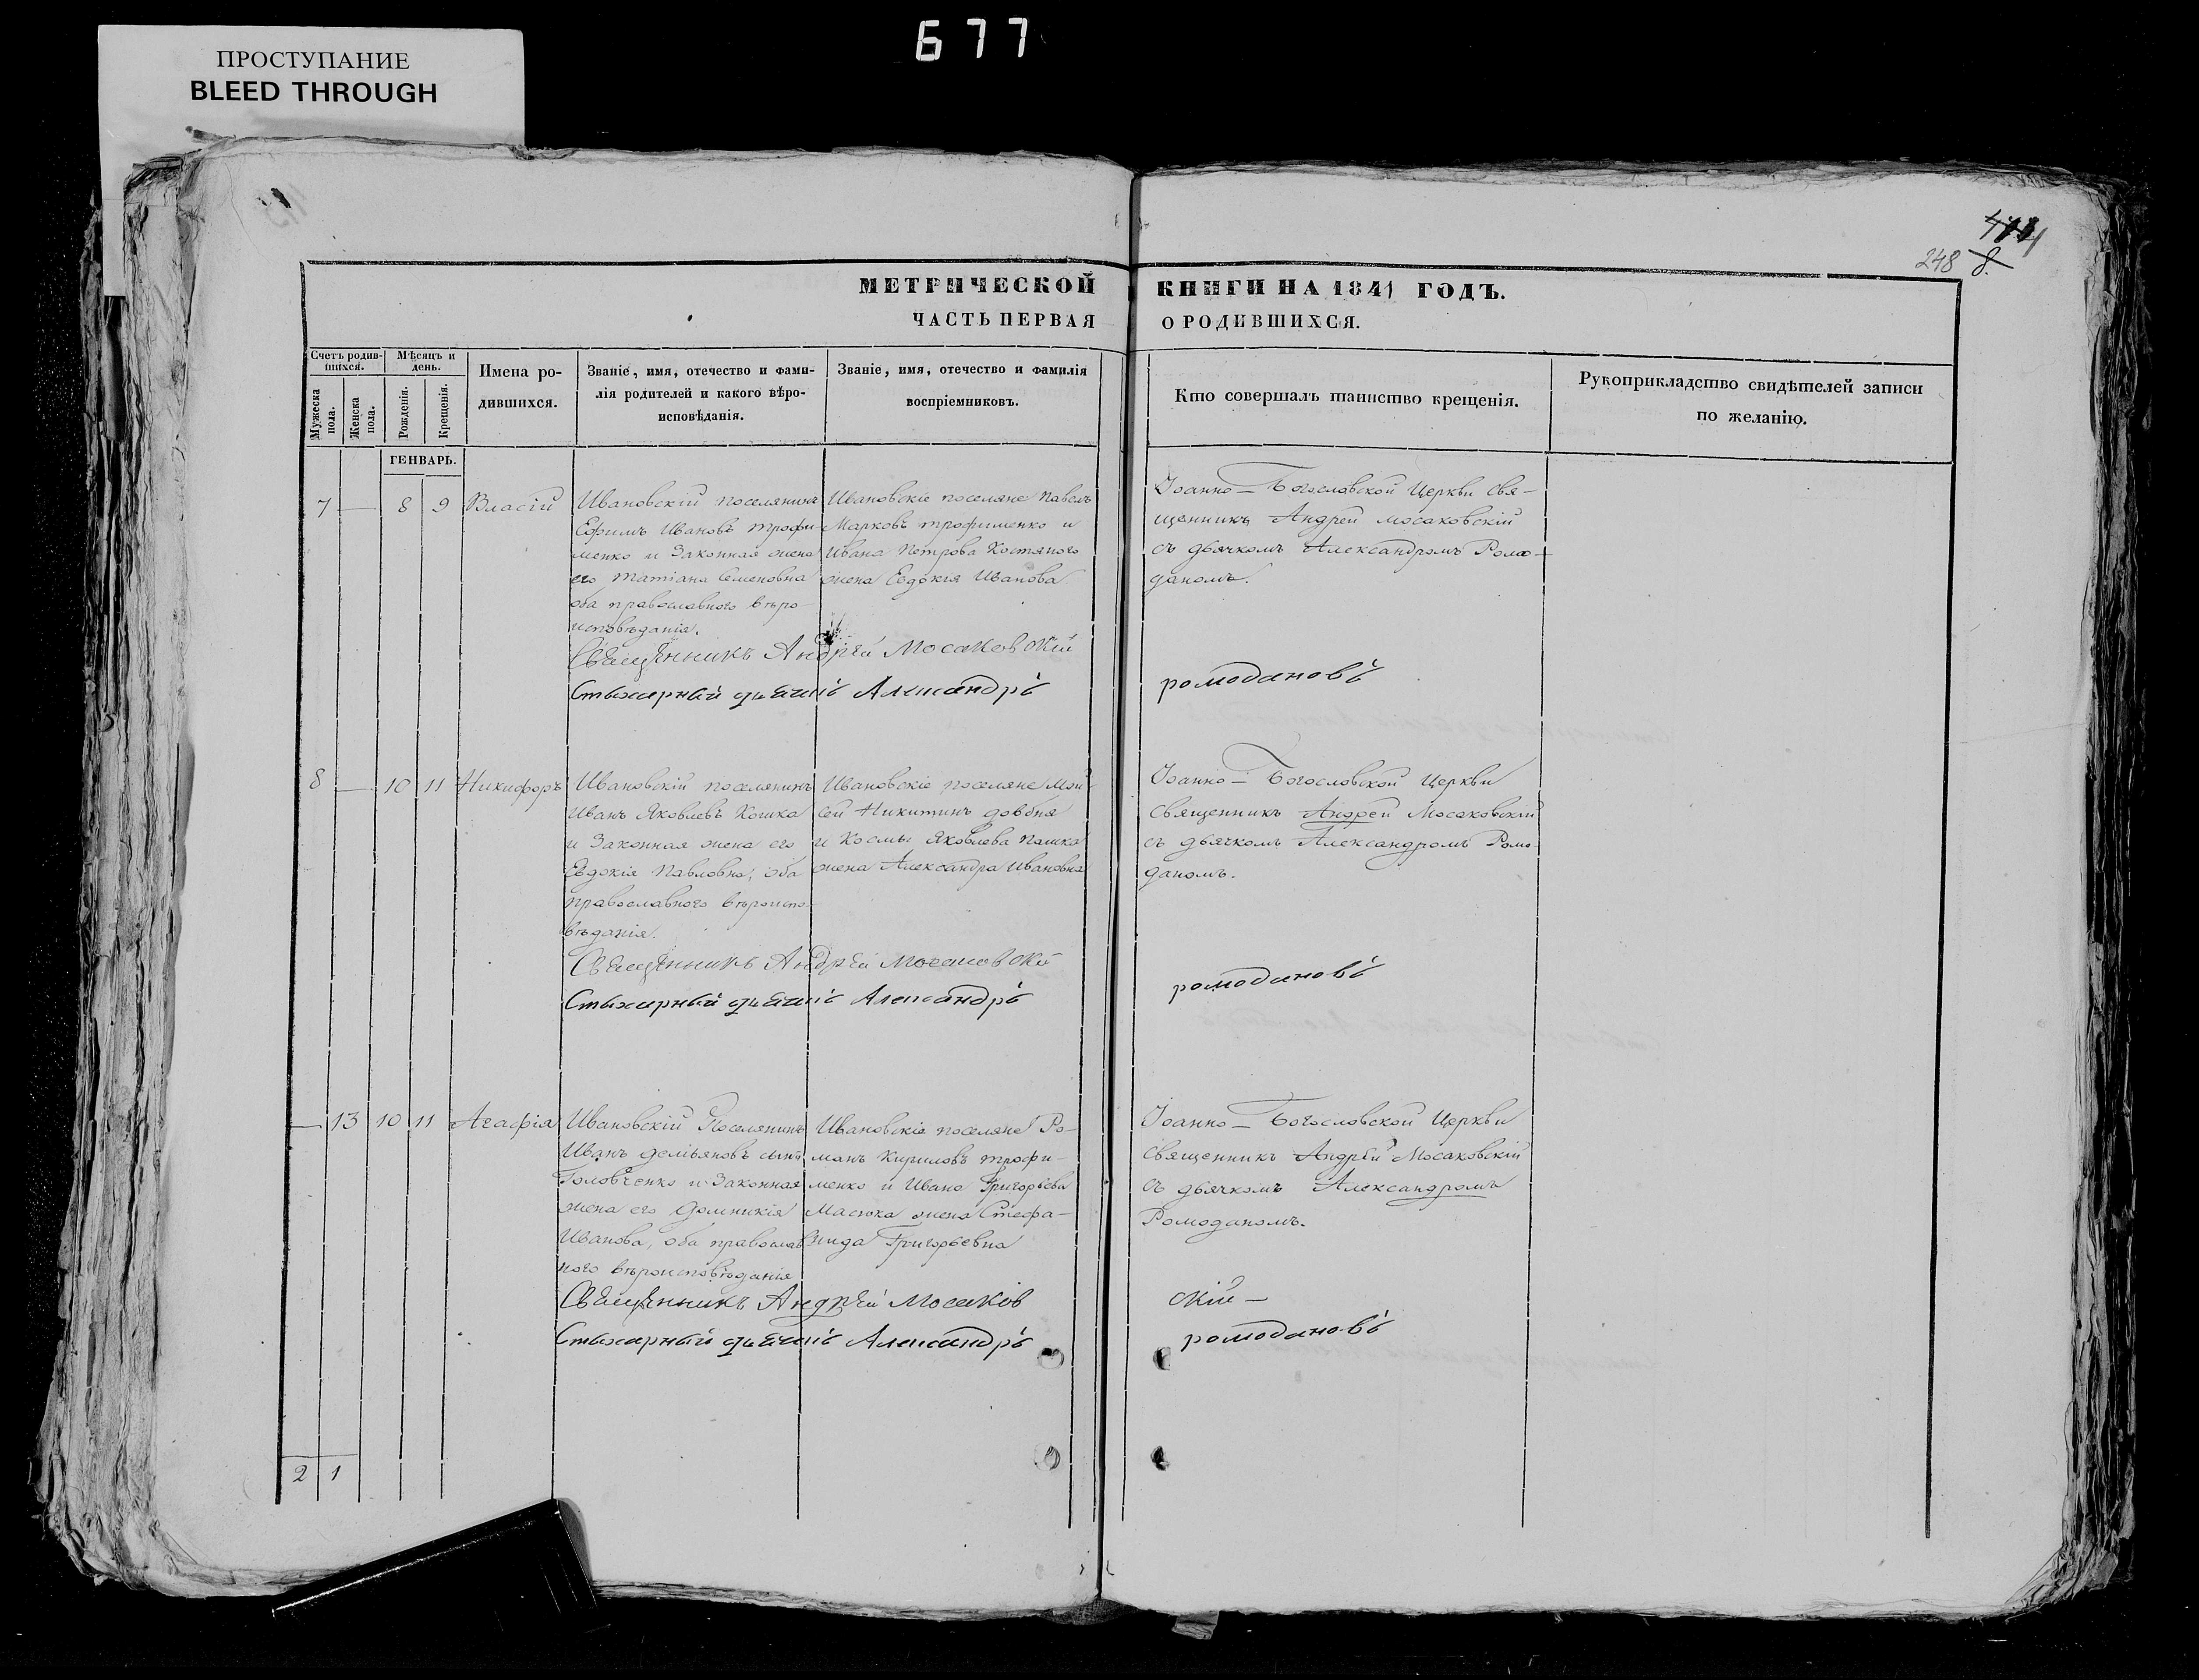 677
ПРОСТУПАНИЕ
BLEED THROUGH
248
МЕТРИЧЕСКОЙ КНИГИ НА 1841 ГОДЪ.
ЧАСТЬ ПЕРВАЯ О РОДИВШИХСЯ.
Счетъ родив-
шихся.
Мужеска
пола.
Женска
пола.
Мѣсяцъ и
день.
Рожденія.
Крещенія.
Имена ро-
дившихся.
Званіе, имя, отечество и фами-
лія родителей и какого вѣро-
исповѣданія.
Званіе, имя, отечество и фамилія
воспріемниковъ.
Кто совершалъ таинство крещенія.
Рукоприкладство свидѣтелей записи
по желанію.
ГЕНВАРЬ.
7 — 8 9 Власій
Ивановскій поселянинъ
Ефримъ Ивановъ трофи-
менко и Законная жена
его татіана Семеновна
оба православного вѣро-
исповѣданія.
Ивановскіе поселяне Павелъ
Марковъ трофименко и
Ивана Петрова Костяного
жена Евдокія Иванова
Іоанно-Богословской Церкви свя-
щенникъ Андрей мосаковскій
съ дьячкомъ Александромъ Ромо-
даномъ.
Священникъ Андрей Мосаковскій
Стихарный дьячекъ Александръ ромодановъ
8 — 10 11 Никифоръ
Ивановскій поселянинъ
Иванъ Яковлевъ Кошка
и Законная жена его
Евдокія Павловна, оба
православного вѣроиспо-
вѣданія.
Ивановскіе поселяне Мои-
сей Никитинъ довбня
и Космы Яковлева Пашка
жена Александра Ивановна
Іоанно-Богословской Церкви
священникъ Андрей Мосаковскій
съ дьячкомъ Александромъ Ромо-
даномъ.
Священникъ Андрей Мосаковскій
Стихарный дьячекъ Александръ ромодановъ
— 13 10 11 Агафія
Ивановскій Поселянинъ
Иванъ демьяновъ сынъ
Головченко и Законная
жена его Домникія
Иванова, оба православ-
ного вѣроисповѣданія
Ивановскіе поселяне Ро-
манъ Кириловъ трофи-
менко и Ивана Григорьева
Масюка жена Стефа-
нида Григорьевна
Іоанно-Богословской Церкви
Священникъ Андрей Мосаковскій
съ дьячкомъ Александромъ
Ромоданомъ.
Священникъ Андрей Мосаковскій —
Стихарный дьячекъ Александръ ромодановъ
2 1